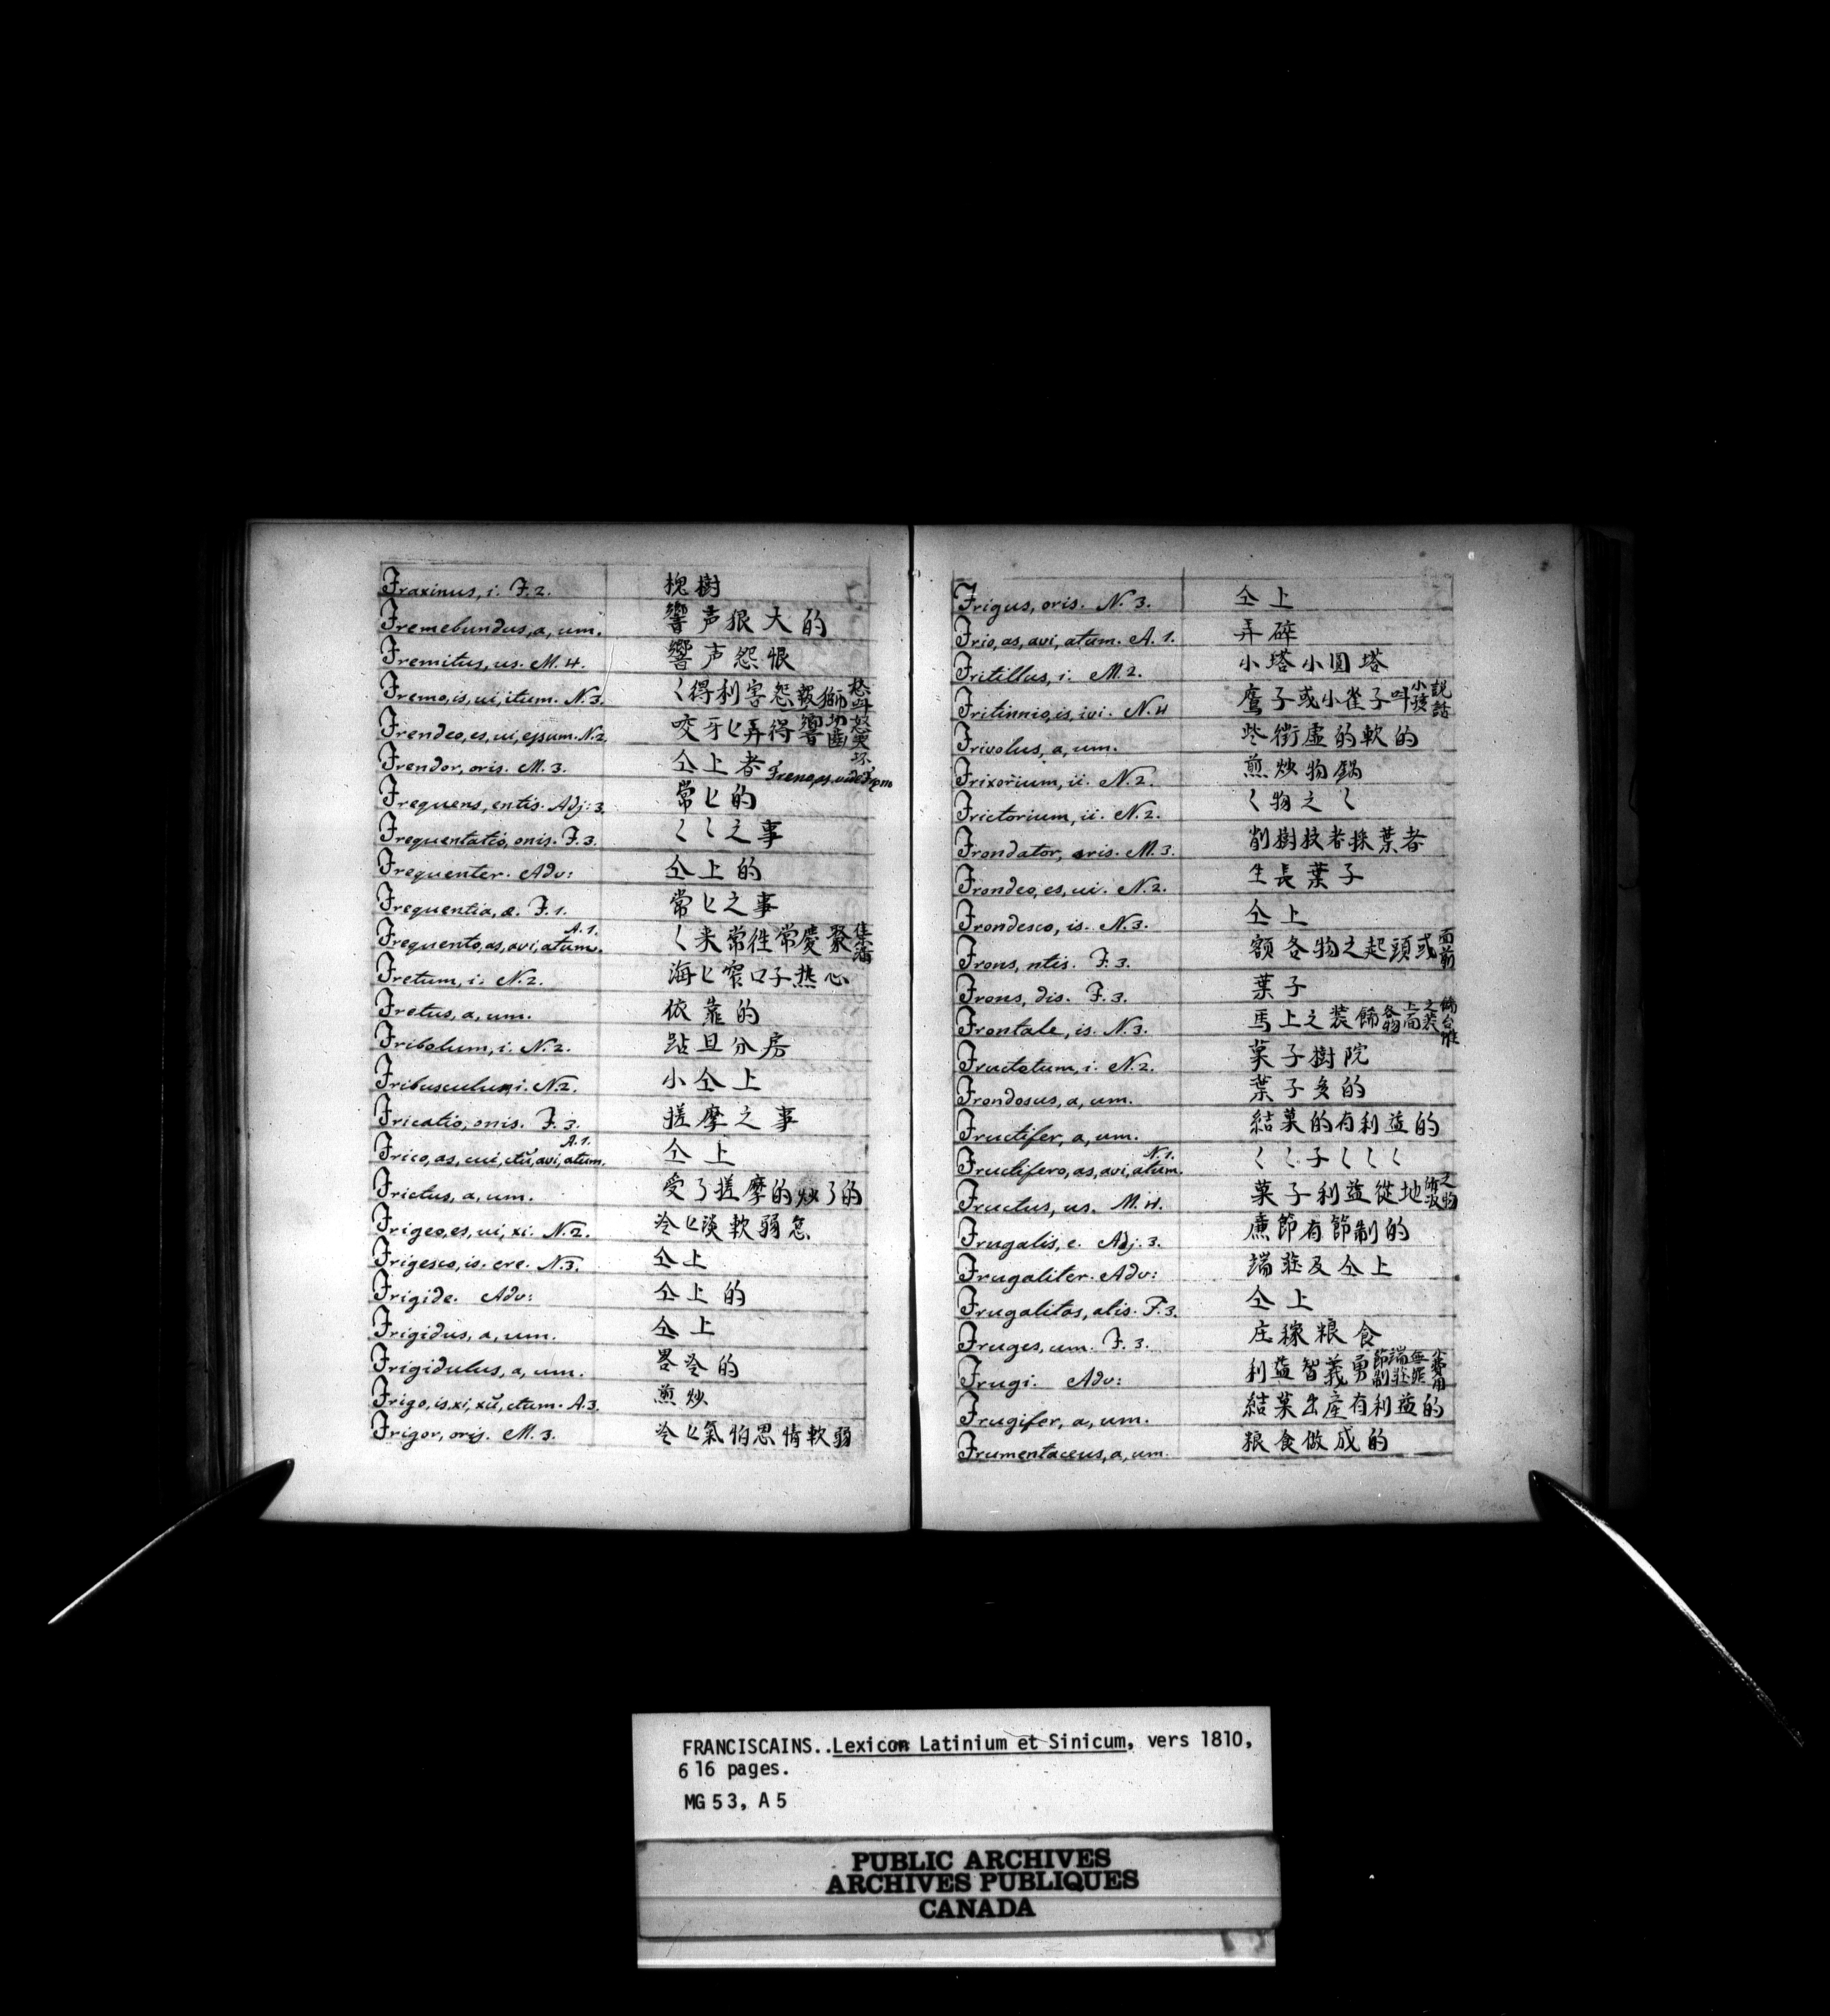 Fraxinus, i. F. 2. 槐樹
Fremebundus, a, um. 響声狠大的
Fremitus, us. M. 4. 響声怨恨
Fremo, is, ui, itum. N. 3. 〱得利害怨報獅
Frendeo, es, ui, essum. N. 2. 咬牙匕弄得響
Frendor, oris. M. 3. 仝上者
Frequens, entis. Adj: 3. 常匕的
Frequentatio, onis. F. 3. 〱〱之事
Frequenter. Adv: 仝上的
Frequentia, æ. F. 1. 常匕之事
Frequento, as, avi, atum. A. 1. 〱来常徃常慶聚集
Fretum, i. N. 2. 海匕窄口子热心
Fretus, a, um. 依靠的
Fribolum, i. N. 2. 跕且分房
Fribusculum, i. N. 2. 小仝上
Fricatio, onis. F. 3. 搓摩之事
Frico, as, cui, ctũ, avi, atum. A. 1. 仝上
Frictus, a, um. 受了搓摩的炒了的
Frigeo, es, ui, xi. N. 2. 冷匕淡軟弱怠
Frigesco, is. ere. N. 3. 仝上
Frigide. Adv: 仝上的
Frigidus, a, um. 仝上
Frigidulus, a, um. 畧冷的
Frigo, is, xi, xũ, ctum. A. 3. 煎炒
Frigor, oris. M. 3. 冷匕氣怕思情軟弱
Frigus, oris. N. 3. 仝上
Frio, as, avi, atum. A. 1. 弄碎
Fritillus, i. M. 2. 小塔小圓塔
Fritinnio, is, ivi. N. 4 鷹子或小雀子叫小孩說話
Frivolus, a, um. 些衛虛的軟的
Frixorium, ii. N. 2. 煎炒物鍋
Frictorium, ii. N. 2. 〱物之〱
Frondator, oris. M. 3. 削樹枝者採葉者
Frondeo, es, ui. N. 2. 生長葉子
Frondesco, is. N. 3. 仝上
Frons, ntis. F. 3. 額各物之起頭或面前
Frons, dis. F. 3. 葉子
Frontale, is. N. 3. 馬上之装飾各物上面之装
Fructetum, i. N. 2. 菓子樹院
Frondosus, a, um. 葉子多的
Fructifer, a, um. 結菓的有利益的
Fructifero, as, avi, atum. N. 1. 〱〱子〱〱〱
Fructus, us. M. 4. 菓子利益從地所收之物
Frugalis, e. Adj. 3. 㢘節有節制的
Frugaliter. Adv: 端莊及仝上
Frugalitas, atis. F. 3. 仝上
Fruges, um. F. 3. 庄稼粮食
Frugi. Adv: 利益智義勇節制端莊
Frugifer, a, um. 結菓出產有利益的
Frumentaceus, a, um. 粮食做成的
FRANCISCAINS..Lexicon Latinium et Sinicum, vers 1810,
616 pages.
MG 53, A 5
PUBLIC ARCHIVES
ARCHIVES PUBLIQUES
CANADA